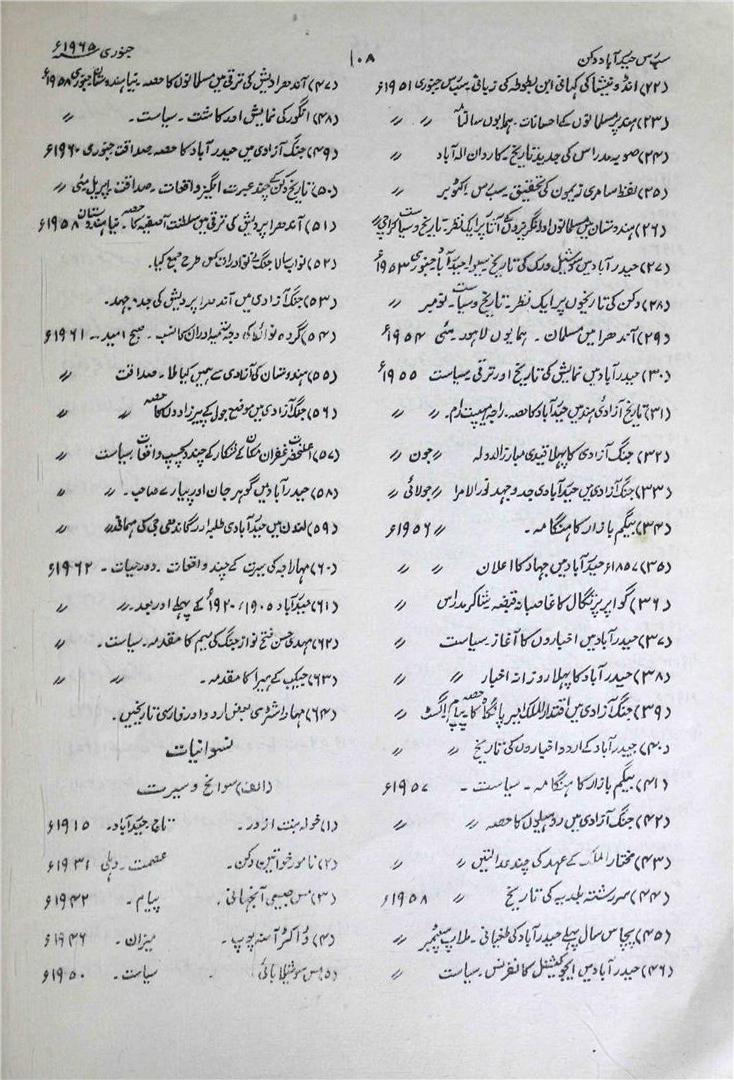 سب رس حیدرآباد دکن
۱۰۸
جنوری ۱۹۶۵ء
(۲۲) انڈونیشیا کی کہانی ابن بطوطہ کی زبانی سب رس جنوری ۱۹۵۱ء
(۲۳) ہند پر مسلمانوں کے احسانات۔ ہمایوں سالنامہ 〃 〃
(۲۴) صوبہ مدراس کی جدید تاریخ۔ کاروان الہ آباد 〃
(۲۵) لفظ سامری زیمون کی تحقیق۔ سب رس اکٹوبر 〃
(۲۶) ہندوستان میں مسلمانوں اور انگریزوں کے پر ایک نظر۔ تاریخ و سیاست کراچی 〃
(۲۷) حیدرآباد میں سوشیل ورک کی تاریخ حیدرآباد جنوری ۱۹۵۳ء
(۲۸) دکن کی تاریخوں پر ایک نظر۔ تاریخ و سیاست۔ نومبر 〃
(۲۹) آندھرا میں مسلمان۔ ہمایوں لاہور۔ مئی ۱۹۵۴ء
(۳۰) حیدرآباد میں نمایش کی تاریخ اور ترقی سیاست ۱۹۵۵ء
(۳۱) تاریخ آزادی ہند میں حیدرآباد کا حصہ۔ 〃 〃
(۳۲) جنگ آزادی کا پہلا قیدی مبارز الدولہ 〃 جون 〃
(۳۳) جنگ آزادی میں حیدرآبادی جد و جہد نور الامرا 〃 جولائی 〃
(۳۴) بیگم بازار کا ہنگامہ۔ 〃 ۱۹۵۶ء
(۳۵) ۱۸۵۷ء حیدرآباد میں جہاد کا اعلان 〃 〃
(۳۶) گوا پر پرتگال کا غاصبانہ قبضہ مدراس 〃
(۳۷) حیدرآباد میں اخباروں کا آغاز۔ سیاست 〃
(۳۸) حیدرآباد کا پہلا روزانہ اخبار 〃 〃
(۳۹) جنگ آزادی میں اقتدار الملک پائگاہ کا حصہ پیام اگسٹ 〃
(۴۰) حیدرآباد کے اردو اخباروں کی تاریخ 〃 〃
(۴۱) بیگم بازار کا ہنگامہ۔ سیاست۔ ۱۹۵۷ء
(۴۲) جنگ آزادی میں روہیلوں کا حصہ 〃 〃
(۴۳) مختار الملک کے عہد کی چند عدالتیں 〃 〃
(۴۴) سررشتہ بلدیہ کی تاریخ 〃 ۱۹۵۸ء
(۴۵) پچاس سال پہلے حیدرآباد کی طغیانی۔ ملاپ سپٹمبر 〃
(۴۶) حیدرآباد میں ایجوکیشنل کانفرنس۔ سیاست 〃
(۴۷) آندھرا دیش کی ترقی میں مسلمانوں کا حصہ۔ نیا ہندوستان جنوری ۱۹۵۸ء
(۴۸) انگور کی نمایش اور کاشت۔ سیاست۔ 〃
(۴۹) جنگ آزادی میں حیدرآباد کا حصہ۔ صداقت جنوری ۱۹۶۰ء
(۵۰) تاریخ دکن کے چند عبرت انگیز واقعات۔ صداقت۔ اپریل مئی 〃
(۵۱) آندھرا پردیش کی ترقی میں سلطنت آصفیہ کا حصہ۔ نیا ہندوستان ۱۹۵۸ء
(۵۲) نواب سالار جنگ نے نوادرات کس طرح جمع کیا۔
(۵۳) جنگ آزادی میں آندھرا پردیش کی جد و جہد۔
(۵۴) گروہ نوائط کی وجہ تسمیہ اور ان کا نسب۔ صبح امید۔ ۱۹۶۱ء
(۵۵) ہندوستان کی آزادی سے ہمیں کیا ملا۔ صداقت 〃
(۵۶) جنگ آزادی میں موضع جول کے پیرزادوں کا حصہ 〃 〃
(۵۷) اعلحضرت غفران مکاں کے شکار کے چند دلچسپ واقعات سیاست 〃
(۵۸) حیدرآباد میں گوہر جان اور پیارے صاحب۔ 〃 〃
(۵۹) لندن میں حیدرآبادی طلبہ اور گاندھی جی کی 〃 〃
(۶۰) مہاراجہ کی سیرت کے چند واقعات۔ دور حیات۔ ۱۹۶۲ء
(۶۱) حیدرآباد ۱۹۰۵، ۱۹۲۰ء کے پہلے اور بعد۔ 〃 〃
(۶۲) مہدی حسن فتح نواز جنگ کی میم کا مقدمہ۔ سیاست۔ 〃
(۶۳) جیکب کے ہیرا کا مقدمہ۔ 〃 〃
(۶۴) مہاراشٹرا کی بعض اردو اور فارسی تاریخیں۔
نسوانیات
(الف) سوانح و سیرت
(۱) خولہ بنت ازور۔ تاج حیدرآباد۔ ۱۹۱۵ء
(۲) نامور خواتین دکن۔ عصمت۔ دہلی ۱۹۳۱ء
(۳) مس جیبی آنجہانی۔ پیام۔ ۱۹۴۲ء
(۴) ڈاکٹر آمنہ پوپ۔ میزان۔ ۱۹۴۶ء
(۵) مس سوشیلا بائی۔ سیاست۔ ۱۹۵۰ء